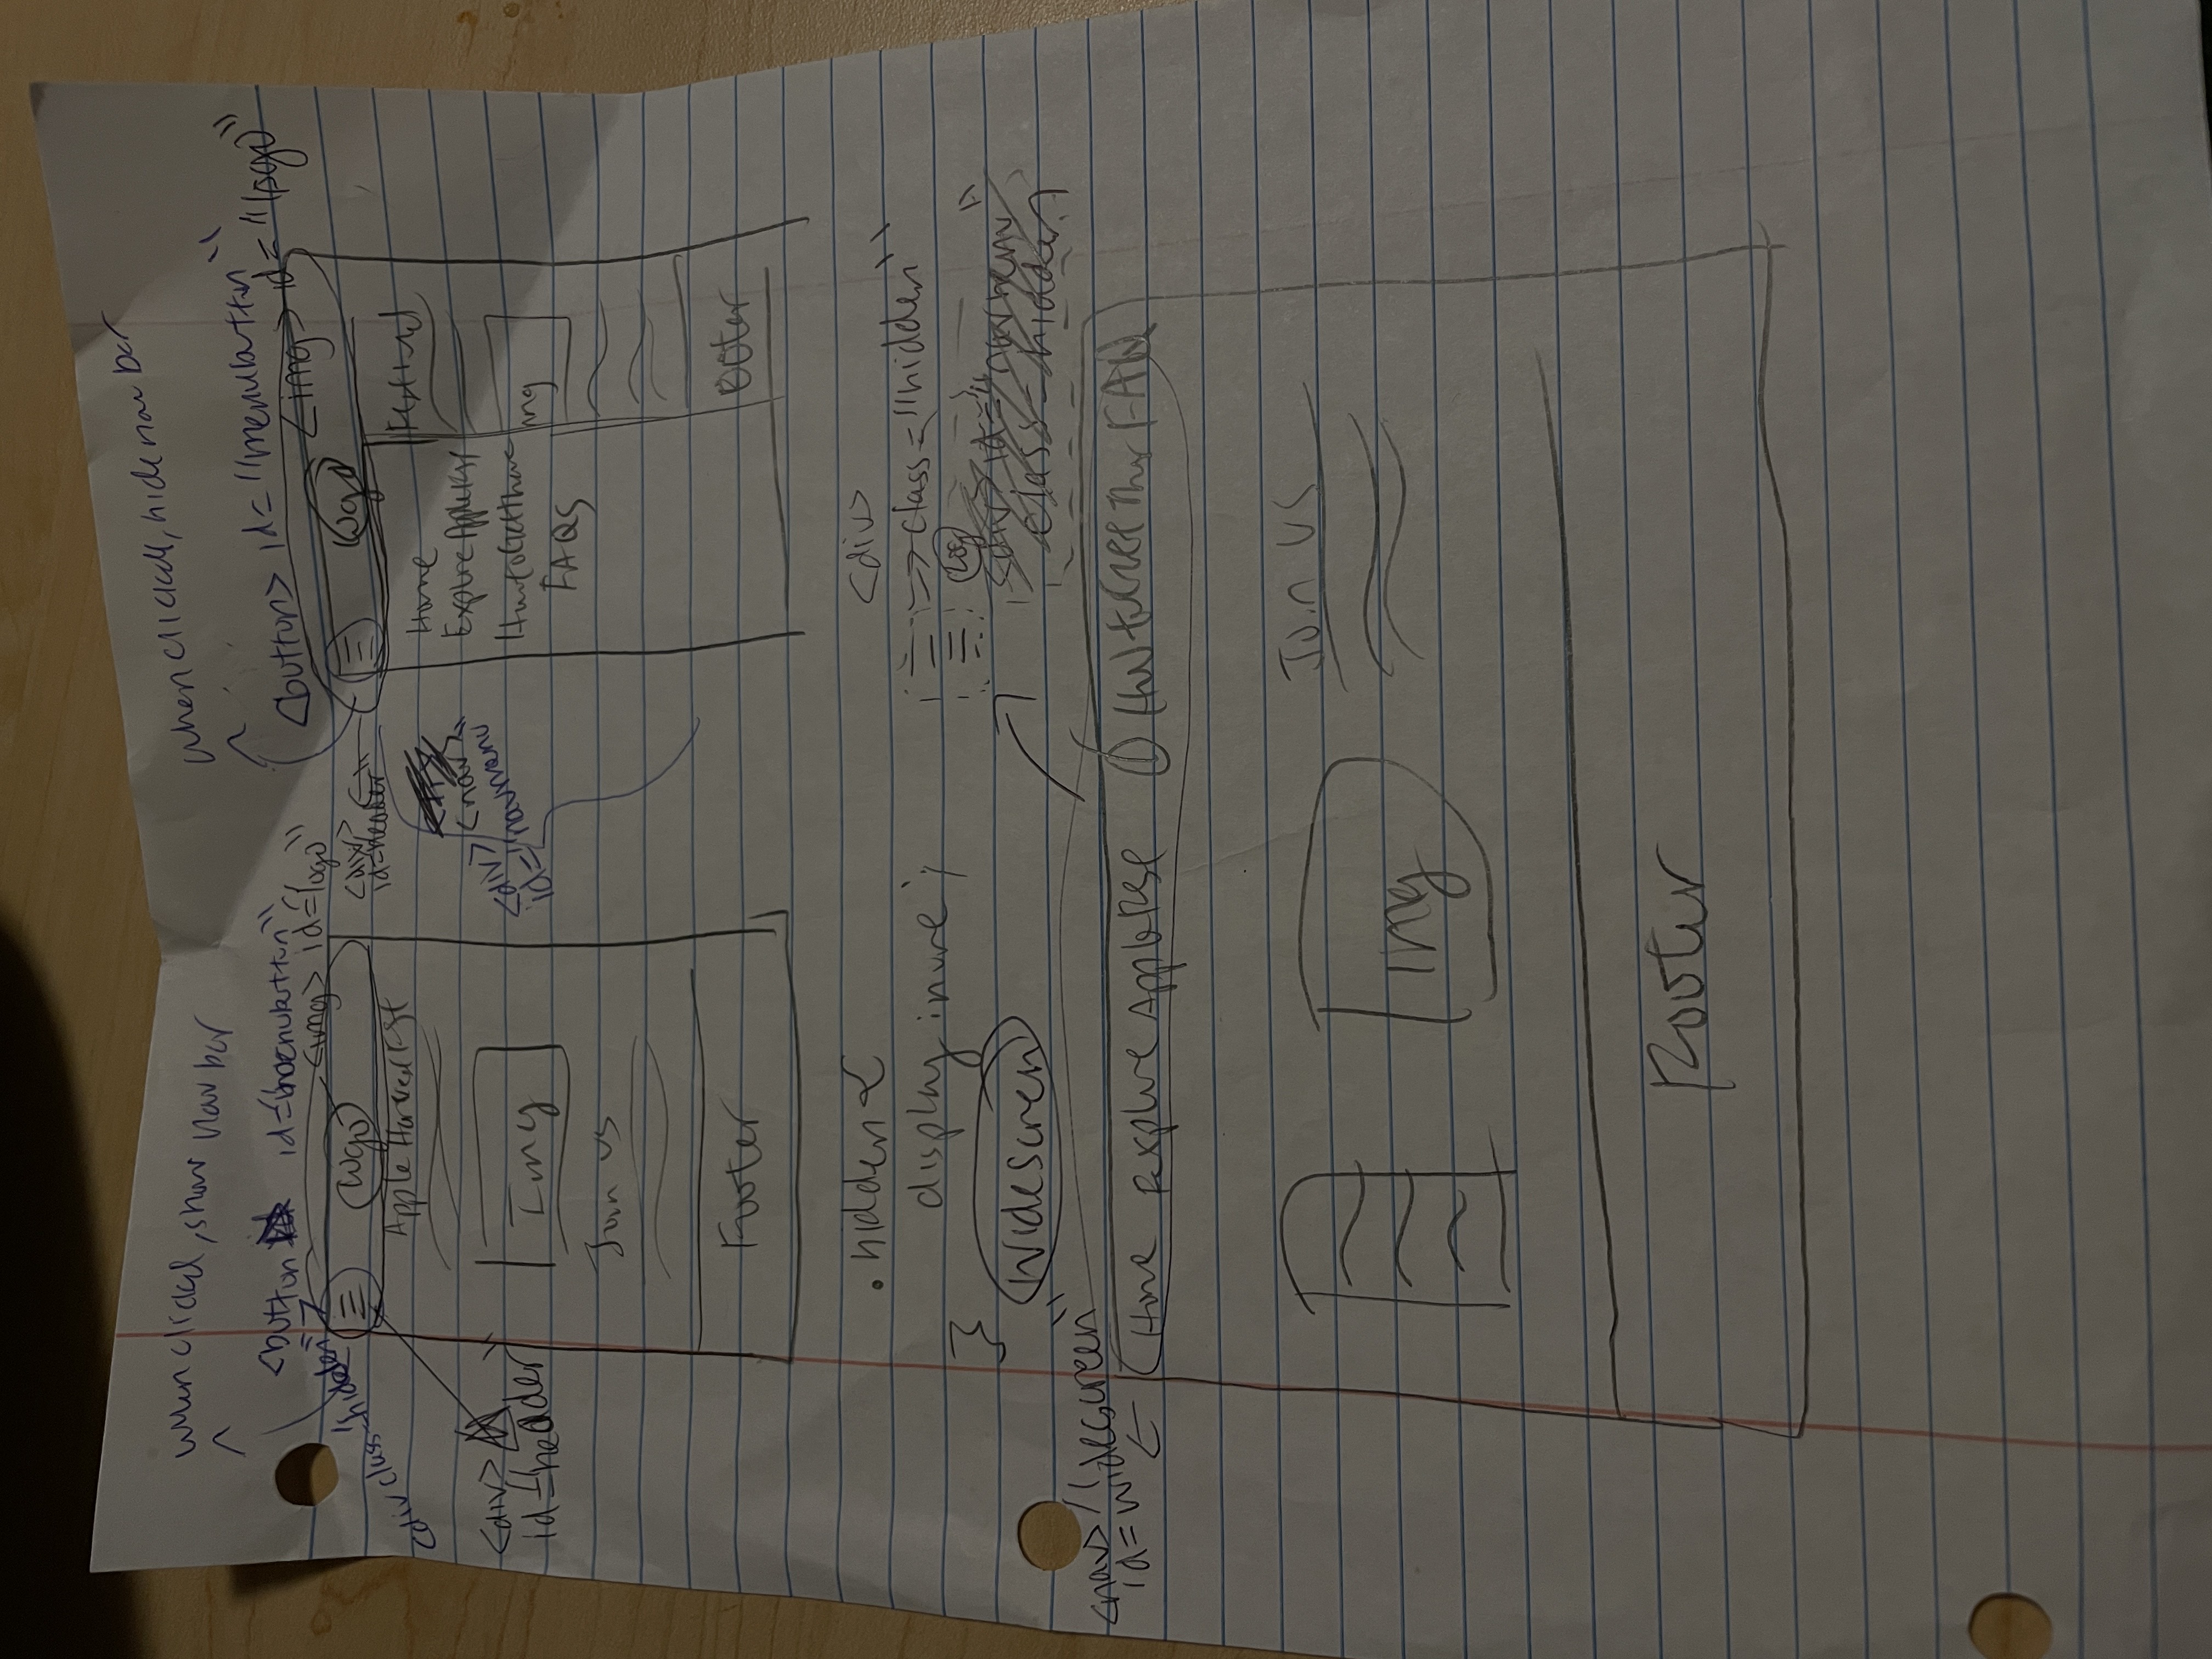 when clicked, show nav bar
when clicked, hide nav bar
<button id="menubutton"
<img> id="logo"
<div class="hidden"
logo
Apple Harvest Fest
<div>
id="header"
Img
Join us
Footer
<button> id="menubutton"
<img> id="logo"
<div>
id=header"
logo
<nav>
<div>
id="navmenu"
Home
Explore Applefest
How to Get There
FAQs
Festival
mg
ooter
.hidden {
display:none;
}
<div>
=> class="hidden"
Log
<div> id="navmenu"
class=hidden
Widescreen
<nav>
id="widescreen"
Home Explore Applefest How to Get There FAQ
Img
Join us
Footer